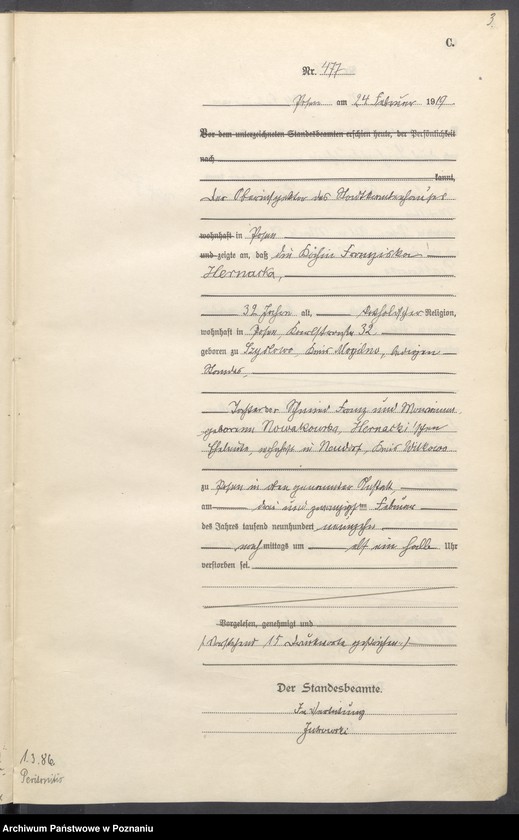 3.
C.
Nr. 477
Posen am 24 Februar 1919.
Vor dem unterzeichneten Standesbeamten erschien heute, der Persönlichkeit
nach
kannt,
Der Oberinspektor des Stadtkrankenhauses
wohnhaft in Posen
und zeigte an, daß die Köchin Franziska
Hernacka,
32 Jahre alt, katholischer Religion,
wohnhaft in Posen, 32
geboren zu Kreis Mogilno, ledigen
Standes,
Tochter der Franz und
geborenen Nowakowska, Hernacki'schen
Eheleute, wohnhaft in Neudorf, Kreis Witkowo
zu Posen in der genannten Anstalt
am drei und zwanzigsten Februar
des Jahres tausend neunhundert neunzehn
nachmittags um elf ein halb Uhr
verstorben sei.
Vorgelesen, genehmigt und
(Vorstehend 15 Druckworte gestrichen.)
Der Standesbeamte.
In Vertretung
1.3.86.
Peritonitis
Archiwum Państwowe w Poznaniu